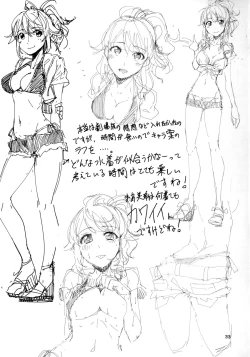 本当は劇場版の感想など入れたかったの
ですが、時間が無いのでキャラ案の
ラフを……。
どんな水着が似合うかなーって
考えている時間はとても楽しい
ですね!
何着ても
カワイイん
ですけどね!
33